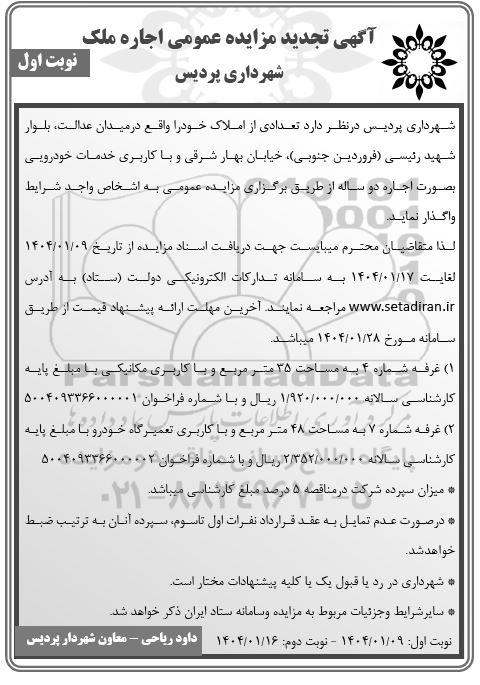 آگهی تجدید مزایده عمومی اجاره ملک
شهرداری پردیس
نوبت اول
شهرداری پردیس درنظر دارد تعدادی از املاک خودرا واقع درمیدان عدالت، بلوار
شهید رئیسی (فروردین جنوبی)، خیابان بهار شرقی و با کاربری خدمات خودرویی
بصورت اجاره دو ساله از طریق برگزاری مزایده عمومی به اشخاص واجد شرایط
واگذار نماید.
لذا متقاضیان محترم میبایست جهت دریافت اسناد مزایده از تاریخ ۱۴۰۴/۰۱/۰۹
لغایت ۱۴۰۴/۰۱/۱۷ به سامانه تدارکات الکترونیکی دولت (ستاد) به آدرس
www.setadiran.ir مراجعه نمایند. آخرین مهلت ارائه پیشنهاد قیمت از طریق
سامانه مورخ ۱۴۰۴/۰۱/۲۸ میباشد.
۱) غرفه شماره ۴ به مساحت ۳۵ متر مربع و با کاربری مکانیکی با مبلغ پایه
کارشناسی سالانه ۱/۹۲۰/۰۰۰/۰۰۰ ریال و با شماره فراخوان ۵۰۰۴۰۹۳۳۶۶۰۰۰۰۰۱
۲) غرفه شماره ۷ به مساحت ۴۸ متر مربع و با کاربری تعمیرگاه خودرو با مبلغ پایه
کارشناسی سالانه ۲/۳۵۲/۰۰۰/۰۰۰ ریال و با شماره فراخوان ۵۰۰۴۰۹۳۳۶۶۰۰۰۰۰۲
* میزان سپرده شرکت درمناقصه ۵ درصد مبلغ کارشناسی میباشد.
* درصورت عدم تمایل به عقد قرارداد نفرات اول تاسوم، سپرده آنان به ترتیب ضبط
خواهدشد.
* شهرداری در رد یا قبول یک یا کلیه پیشنهادات مختار است.
* سایرشرایط وجزئیات مربوط به مزایده وسامانه ستاد ایران ذکر خواهد شد.
نوبت اول: ۱۴۰۴/۰۱/۰۹ - نوبت دوم: ۱۴۰۴/۰۱/۱۶
داود ریاحی – معاون شهردار پردیس
ParsNamadData
۰۲۱-۸۸۳۴۹۶۷۰-۵